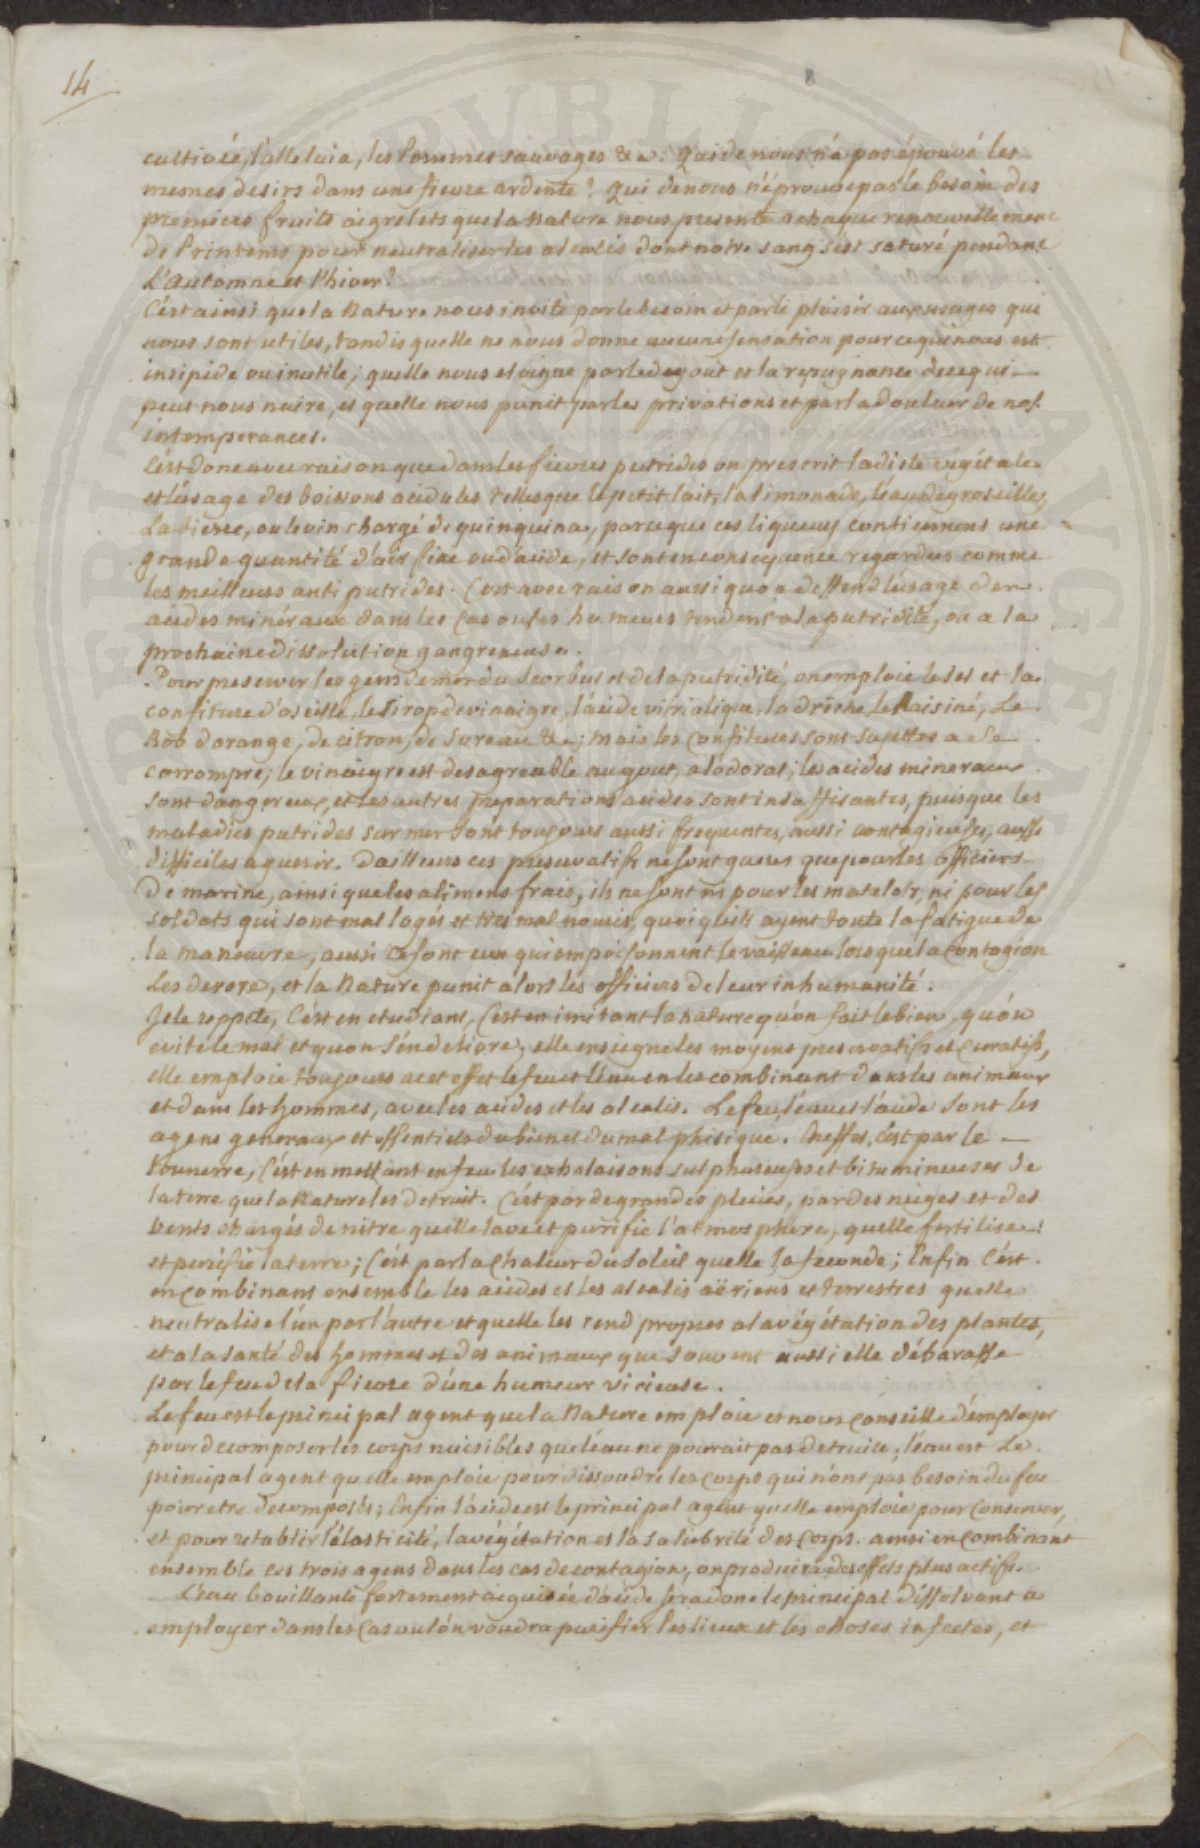 14
8
cultivée, l'alleluia, les Pommes sauvages &a. Qui de nous n'a pas éprouvé les
mesmes desirs dans une fievre ardente? Qui de nous n'éprouve pas le besoin des
premiers fruits aigrelets que la Nature nous presente a chaque renouvellement
de Printems pour neutraliser les alcalis dont notre sang s'est saturé pendant
L'Automne et l'hiver?
C'est ainsi que la Nature nous invite par le besoin et par le plaisir aux usages qui
nous sont utiles, tandis quelle ne nous donne aucune sensation pour ce qui nous est
insipide ou inutile; quelle nous eloigne par le degout et la repugnance de ce qui
peut nous nuire, et quelle nous punit par les privations et par la douleur de nos
intemperances.
C'est donc avec raison que dans les fievres putrides on prescrit la diete végétale
et l'usage des boissons acidules telles que le petit lait, la limonade, l'eau de groseilles,
La bierre, ou le vin chargé de quinquina, parceque ces liqueurs contiennent une
grande quantité d'air fixe ou d'acide, et sont en consequence regardees comme
les meilleurs anti putrides. C'est avec raison aussi quon deffend l'usage des
acides minéraux dans les cas ou les humeurs tendent a la putridité, ou a la
prochaine dissolution gangreneuse.
Pour preserver les gens de mer du Scorbut et de la putridité, on emploie le sel et la
confiture d'oseille, le Sirop de vinaigre, l'acide vitriolique, la drêche, le Raisiné, Le
Rob d'orange, de citron, de Sureau &a; mais les confitures sont sujettes a se
corrompre; le vinaigre est desagreable au gout, a l'odorat; les acides mineraux
sont dangereux, et les autres preparations acides sont insuffisantes, puisque les
maladies putrides sur mer sont toujours aussi frequentes, aussi contagieuses, aussi
difficiles a guerir. D'ailleurs ces preservatifs ne sont gueres que pour les officiers
de marine, ainsi que les alimens frais, ils ne sont ni pour les matelots, ni pour les
soldats qui sont mal logés et tres mal nouris, quoiquils ayent toute la fatigue de
la manœuvre, aussi ce sont eux qui empoisonnent le vaisseau lorsque la contagion
Les devore, et la Nature punit alors les officiers de leur inhumanité.
Je le reppete, C'est en etudiant, C'est en imitant la nature qu'on fait le bien, qu'on
evite le mal et quon s'en delivre, elle enseigne les moyens preservatifs et curatifs,
elle emploie toujours a cet effet le feu et l'eau en les combinant dans les animaux
et dans les hommes, avec les acides et les alcalis. Le feu, l'eau et l'acide sont les
agens generaux et essentiels du bien et du mal phisique. En effet, c'est par le
tonnerre, C'est en mettant en feu les exhalaisons sulphureuses et bitumineuses de
la terre que la Nature les detruit. C'est par de grandes pluies, par des neiges et des
vents chargés de nitre quelle lave et purifie l'atmosphere, quelle fertilise
et purifie la terre; C'est par la Chaleur du Soleil quelle la feconde; Enfin C'est
en combinant ensemble les acides et les alcalis aëriens et terrestres quelle
neutralise l'un par l'autre et quelle les rend propres a la végétation des plantes,
et a la santé des hommes et des animaux que souvent aussi elle débarasse
par le feu de la fievre d'une humeur vicieuse.
Le feu est le principal agent que la Nature emploie et nous conseille d'employer
pour decomposer les corps nuisibles que l'eau ne pourait pas detruire, l'eau est Le
principal agent quelle emploie pour dissoudre les corps qui n'ont pas besoin du feu
pour etre decomposés; Enfin l'acide est le principal agent quelle emploie pour conserver,
et pour retablir l'élasticité, la végétation et la salubrité des corps. ainsi en combinant
ensemble ces trois agens dans les cas de contagion, on produira des effets plus actifs.
L'eau bouillante fortement aiguisée d'acide sera donc le principal dissolvant a
employer dans les cas ou l'on voudra purifier les lieux et les choses infectes, et